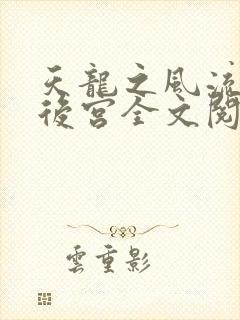 天龍之風流
後宮全文閱
雲重影